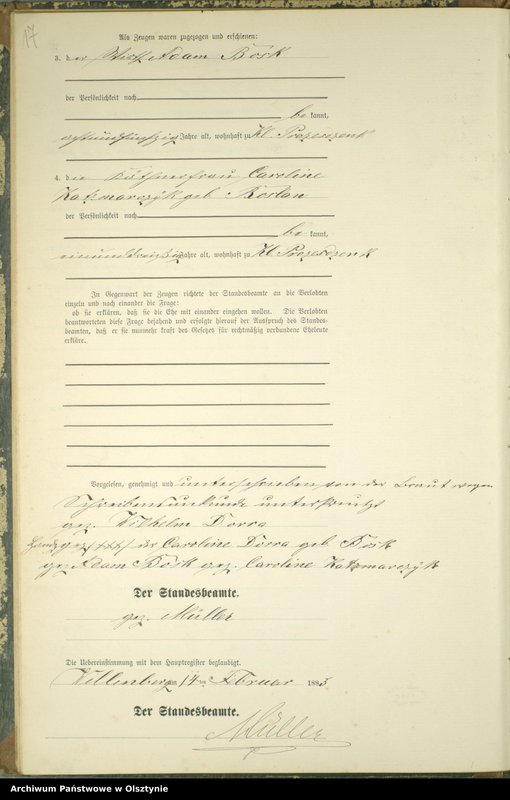 17
Als Zeugen waren zugezogen und erschienen:
3. der Wirth Adam Bosk
der Persönlichkeit nach
be kannt,
achtundfünfzig Jahre alt, wohnhaft zu Kl. Przesdzenk
4. die Käthnerfrau Caroline
Katzmarczÿk geb Koslan
der Persönlichkeit nach
be kannt,
einunddreißig Jahre alt, wohnhaft zu Kl. Przesdzenk
In Gegenwart der Zeugen richtete der Standesbeamte an die Verlobten
einzeln und nach einander die Frage:
ob sie erklären, daß sie die Ehe mit einander eingehen wollen. Die Verlobten
beantworteten diese Frage bejahend und erfolgte hierauf der Ausspruch des Standes-
beamten, daß er sie nunmehr kraft des Gesetzes für rechtmäßig verbundene Eheleute
erkläre.
Vorgelesen, genehmigt und unterschrieben von der Braut wegen
Schreibensunkunde unterkreuzt
gez. Wilhelm Dorra
Handzgez (XXX) der Caroline Dorra geb Bosk
gez Adam Bosk gez. Caroline Katzmarczÿk
Der Standesbeamte.
gez. Müller
Die Uebereinstimmung mit dem Hauptregister beglaubigt.
Willenberg am 14 ten Februar 1883
Der Standesbeamte.
Müller
Archiwum Państwowe w Olsztynie